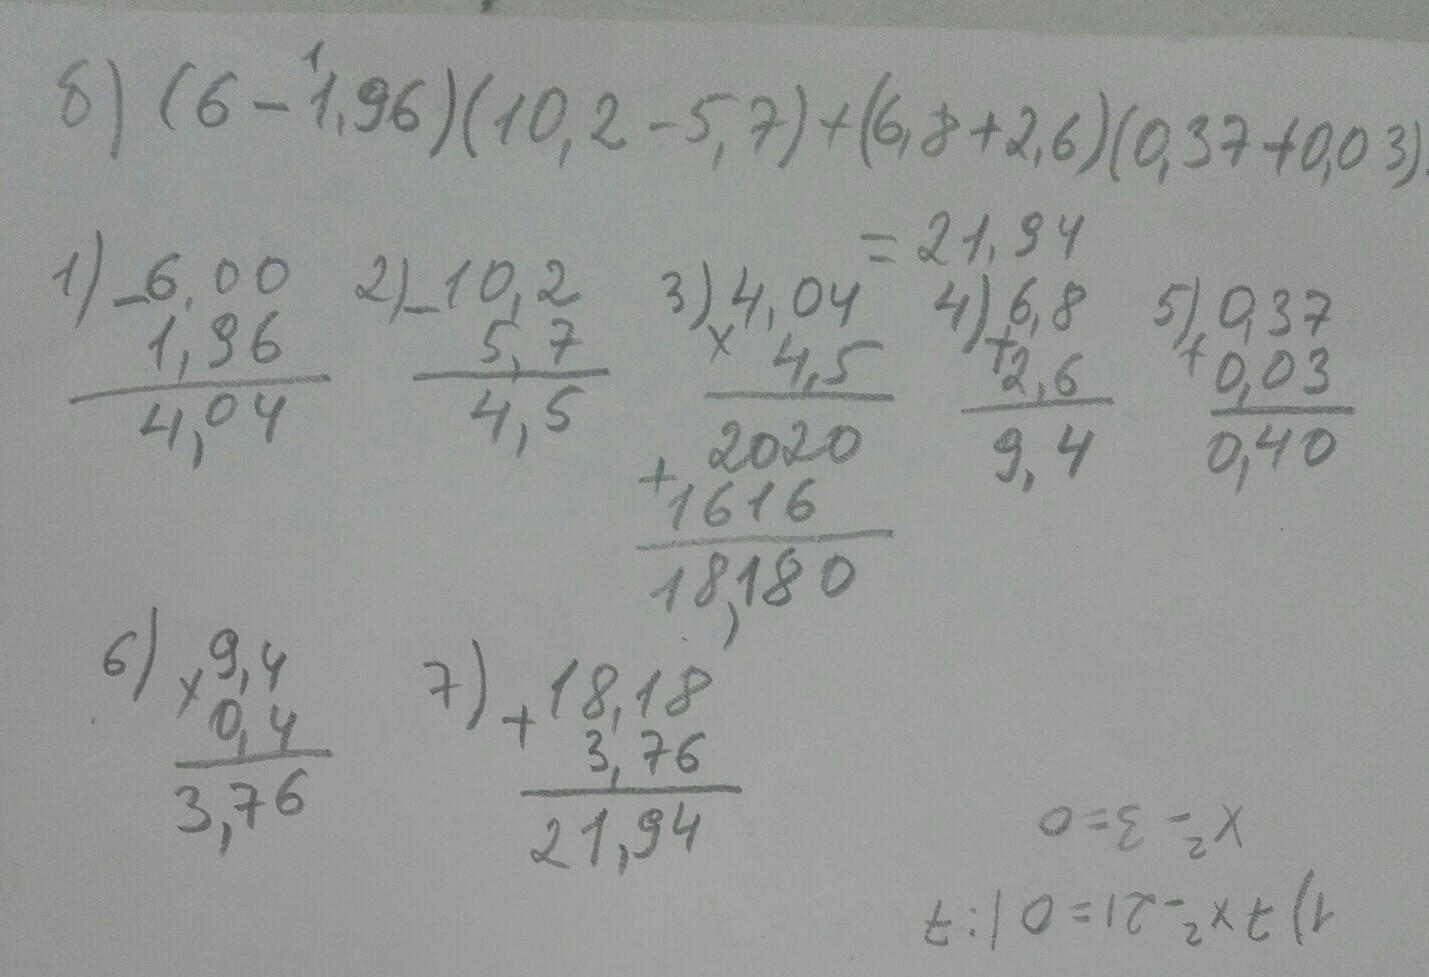 б) (6-1,96)(10,2-5,7)+(6,8+2,6)(0,37+0,03)
=21,94
1) -6,00
1,96
4,04
2) -10,2
5,7
4,5
3) 4,04
x 4,5
2020
+
1616
18,180
4) 6,8
+
2,6
9,4
5) 0,37
+0,03
0,40
6) 9,4
x
0,4
3,76
7) 18,18
+
3,76
21,94
1) 7x²-21=0 |:7
x²-3=0